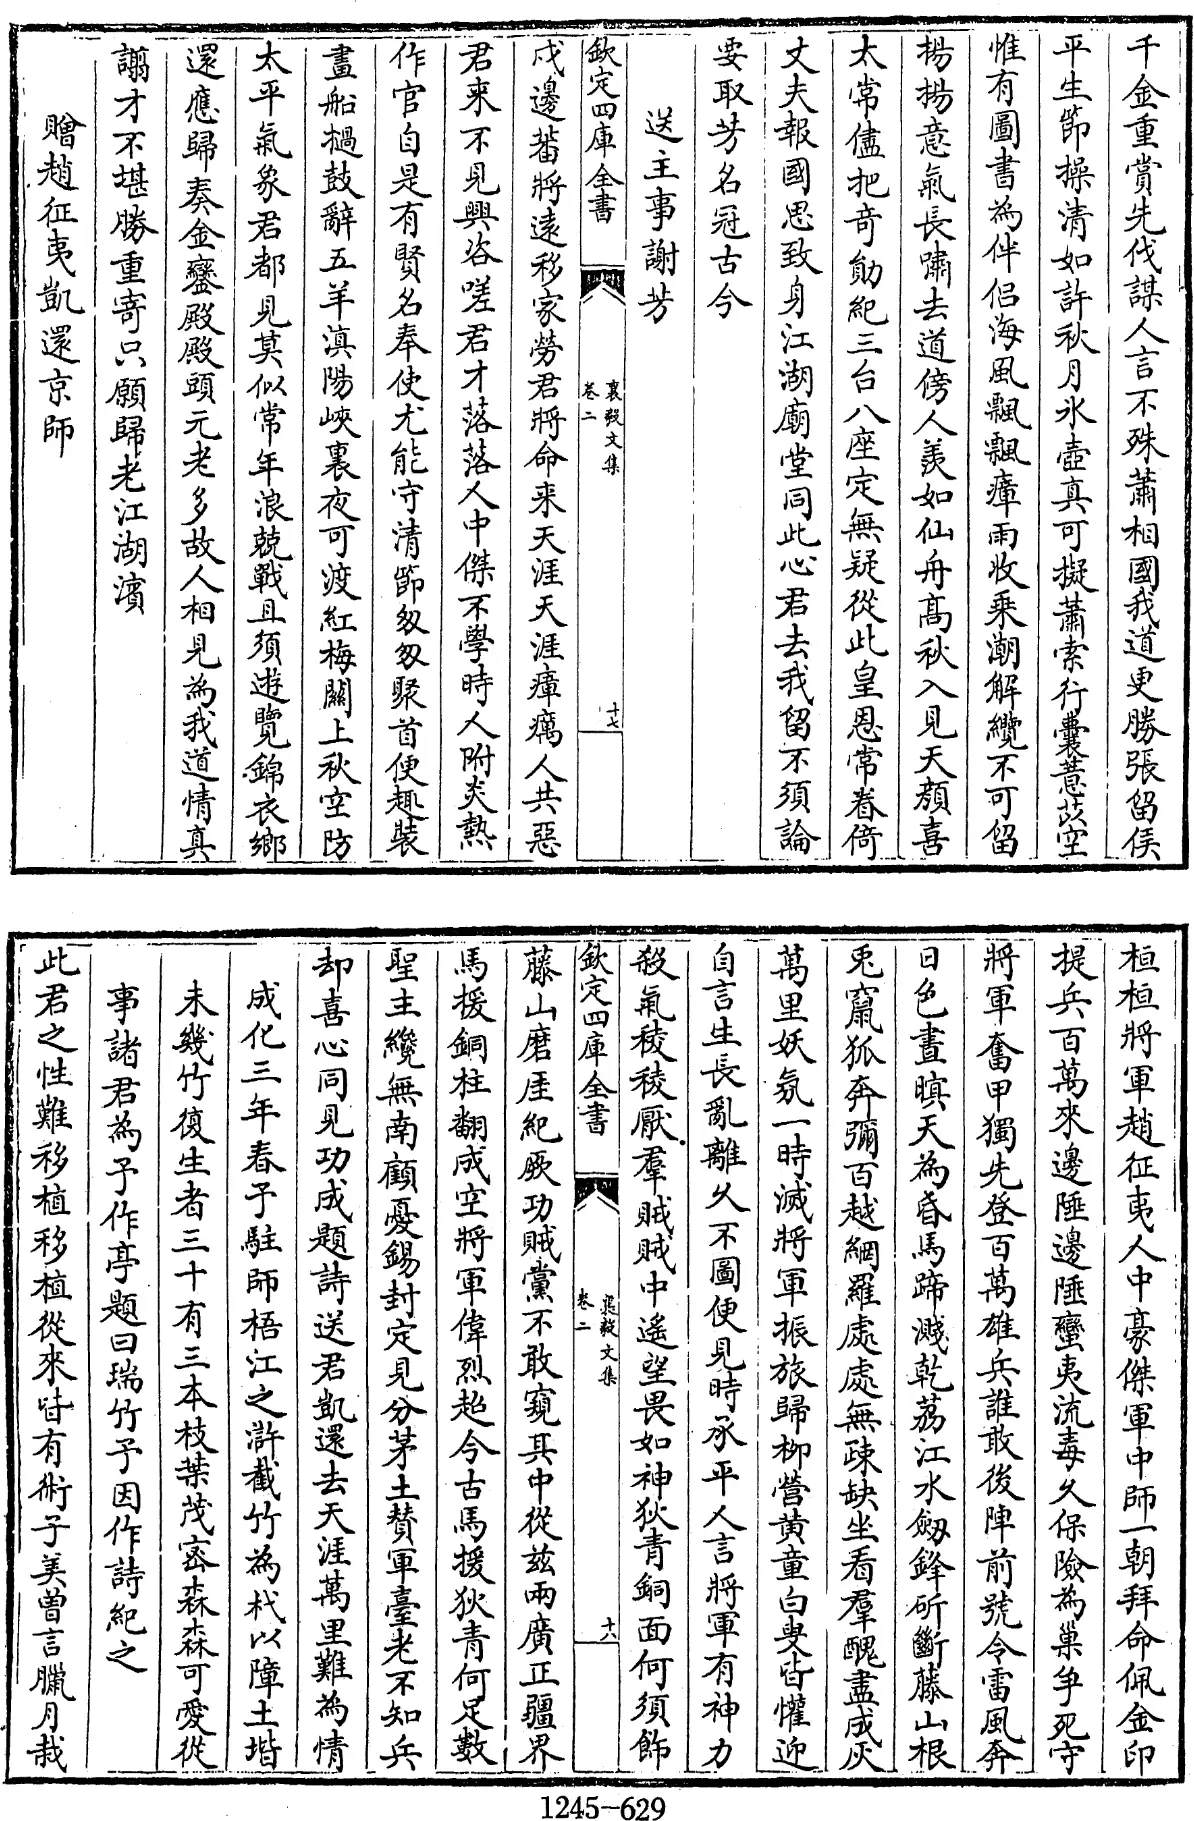 千金重賞先伐謀人言不殊蕭相國我道更勝張留侯
平生節操清如許秋月氷壺真可擬蕭索行囊薏苡空
惟有圖書為伴侶海風飄飄瘴雨收乗潮解纜不可留
揚揚意氣長嘯去道傍人羨如仙舟髙秋入見天顔喜
太常儘把竒勛紀三台八座定無疑從此皇恩常眷倚
丈夫報國思致身江湖廟堂同此心君去我留不須論
要取芳名冠古今
送主事謝芳
欽定四庫全書
襄毅文集
卷二
十七
戍邊蕃將遠移家勞君將命来天涯天涯瘴癘人共惡
君来不見興咨嗟君才落落人中傑不學時人附炎熱
作官自是有賢名奉使尤能守清節匆匆聚首便趣裝
畫船檛鼓辭五羊滇陽峽裏夜可渡紅梅關上秋空防
太平氣象君都見莫似常年浪兢戰且須遊覽錦衣鄉
還應歸奏金鑾殿殿頭元老多故人相見為我道情真
譾才不堪勝重寄只願歸老江湖濱
贈趙征夷凱還京師
桓桓將軍趙征夷人中豪傑軍中師一朝拜命佩金印
提兵百萬來邊陲邊陲蠻夷流毒久保險為巢争死守
將軍奮甲獨先登百萬雄兵誰敢後陣前號令雷風奔
日色晝暝天為昏馬蹄濺乾荔江水劒鋒斫斷藤山根
兎竄狐奔彌百越網羅處處無疎缺坐看羣醜盡成灰
萬里妖氛一時滅將軍振旅歸柳營黄童白叟皆懽迎
自言生長亂離久不圖便見時承平人言將軍有神力
殺氣稜稜厭羣賊賊中遙望畏如神狄青銅面何須飾
欽定四庫全書
襄毅文集
卷二
十八
藤山磨厓紀厥功賊黨不敢窺其中從兹兩廣正疆界
馬援銅柱翻成空將軍偉烈超今古馬援狄青何足數
聖主纔無南顧憂錫封定見分茅土賛軍臺老不知兵
却喜心同見功成題詩送君凱還去天涯萬里難為情
成化三年春予駐師梧江之滸截竹為杙以障土堦
未幾竹復生者三十有三本枝葉茂宻森森可愛從
事諸君為予作亭題曰瑞竹予因作詩紀之
此君之性難移植移植從來皆有術子美曽言臘月栽
1245-629